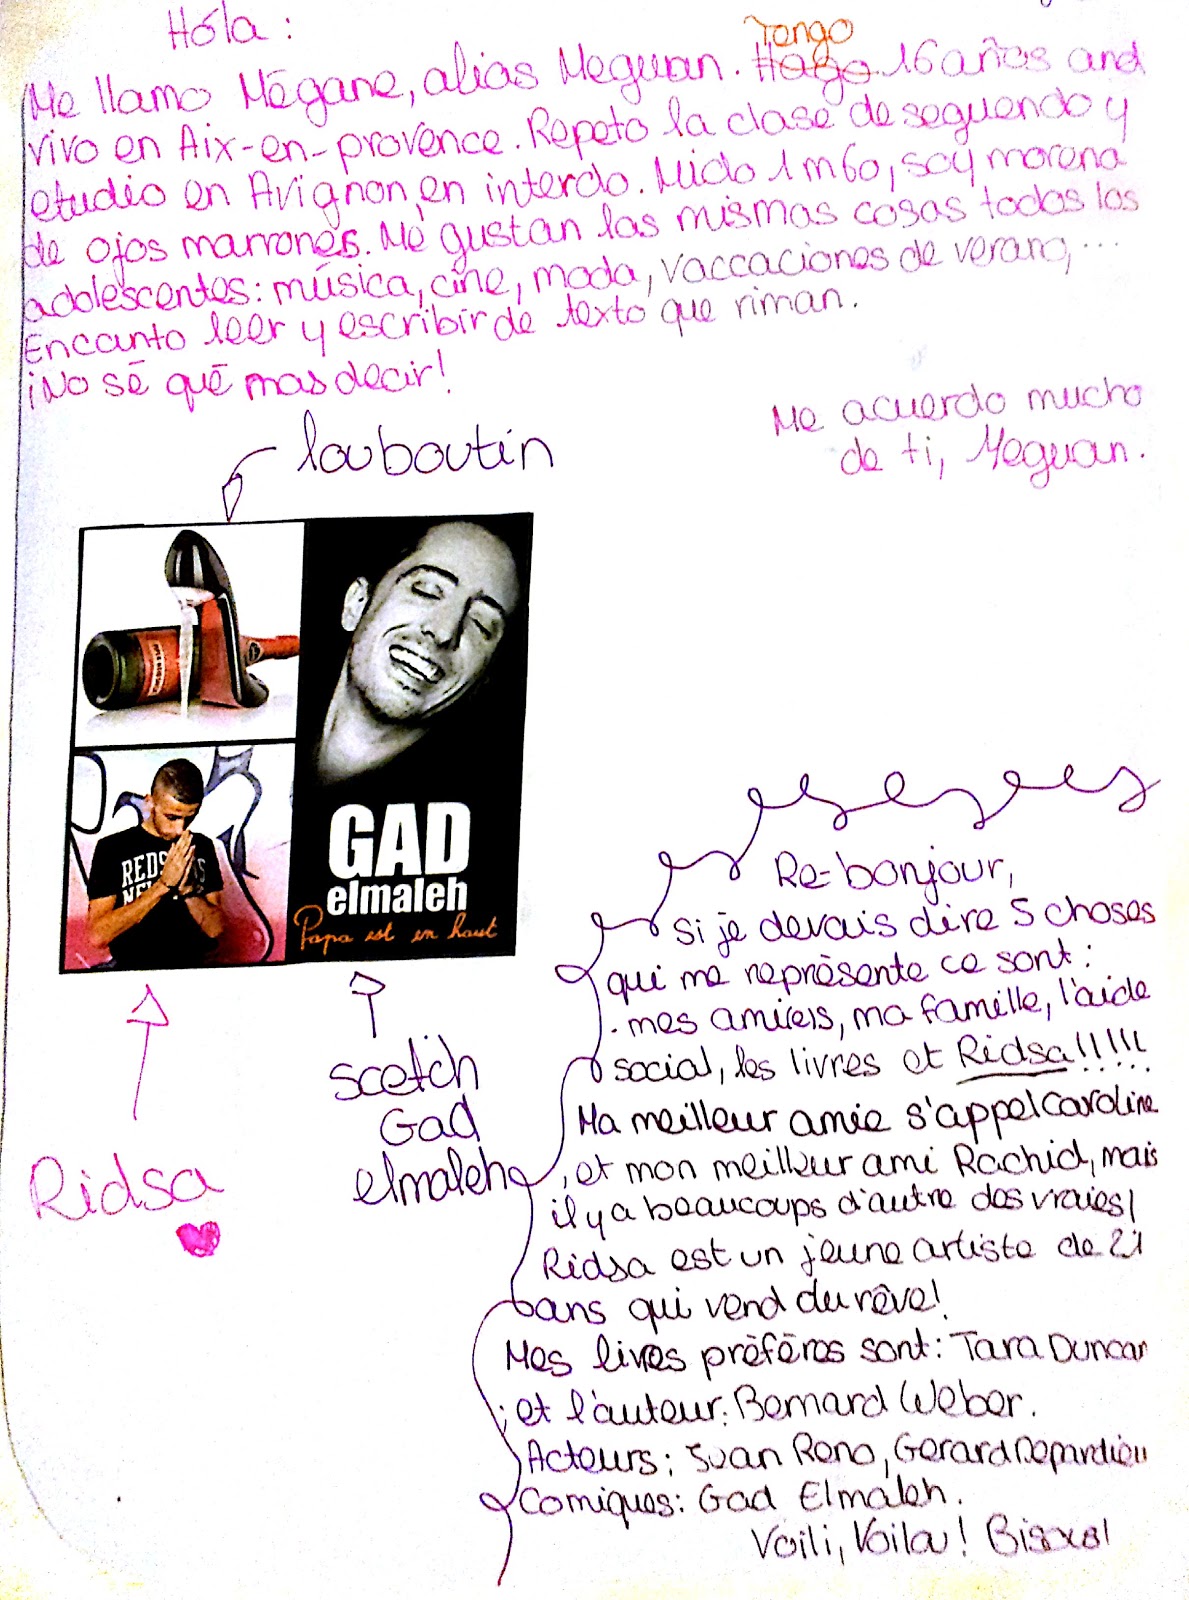 Hóla :
Tengo
Me llamo Mégane, alias Meguan. Hago 16 años and
vivo en Aix-en-provence. Repeto la clase de seguendo y
etudio en Avignon, en interdo. Mido 1m60, soy morena
de ojos marrones. Me gustan las mismas cosas todos los
adolescentes: música, cine, moda, vaccaciones de verano, ...
Encanto leer y escribir de texto que riman.
¡No sé qué mas decir!
Me acuerdo mucho
de ti, Meguan.
louboutin
REDS
GAD
elmaleh
Papa est en haut
Ridsa
scetch
Gad
elmaleh
Re-bonjour,
si je devais dire 5 choses
qui me représente ce sont :
. mes ami(e)s, ma famille, l'aide
social, les livres et Ridsa!!!!!
Ma meilleur amie s'appel Caroline
, et mon meilleur ami Rachid, mais
il y a beaucoups d'autre des vraies!
Ridsa est un jeune artiste de 21
ans qui vend du rêve!
Mes livres préférés sont: Tara Duncan
; et l'auteur: Bernard Weber.
Acteurs: Juan Reno, Gerard Depardieu
Comiques: Gad Elmaleh.
Voili, Voila! Bisoxs!